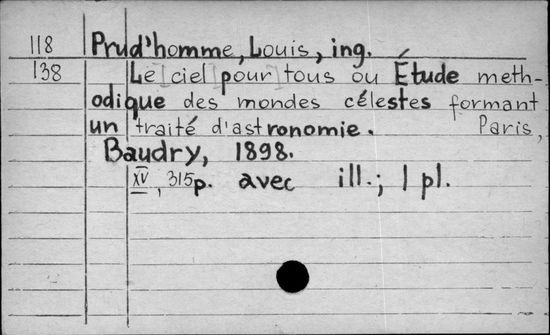 118 Prud'homme, Louis, ing.
138 Le [ciel] pour] tous ou Étude meth-
odique des mondes célestes formant
un traité d'astronomie. Paris,
Baudry, 1898.
XV, 315p. avec ill.; 1 pl.